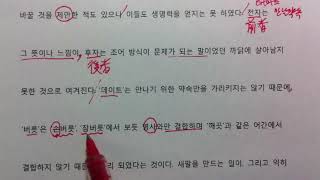 바꿀 것을 제안한 책도 있으나 이들도 생명력을 얻지는 못 하였다. 전자는
前者
그 뜻이나 느낌이, 후자는 조어 방식이 문제가 되는 말이었던 까닭에 살아남지
後者
못한 것으로 여겨진다. '데이트'는 만나기 위한 약속만을 가리키지는 않기 때문에,
'버릇'은 '손버릇', '잠버릇'에서 보듯 명사와만 결합하며 '깨끗'과 같은 어간에서
결합하지 않기 때문에 리 되었다는 것이다. 새말을 만드는 일이, 그리고 익히